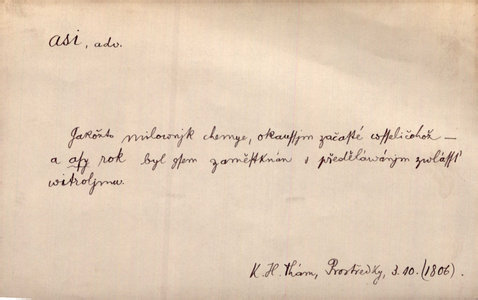 asi, adv.
Jakožto milownjk chemye, okaussjm začasté wsseličehož —
a asy rok byl sem zaměstknán s předěláwánjm zwlásst'
witroljmu.
K. H. Thám, Prostředky, 3.10. (1806).